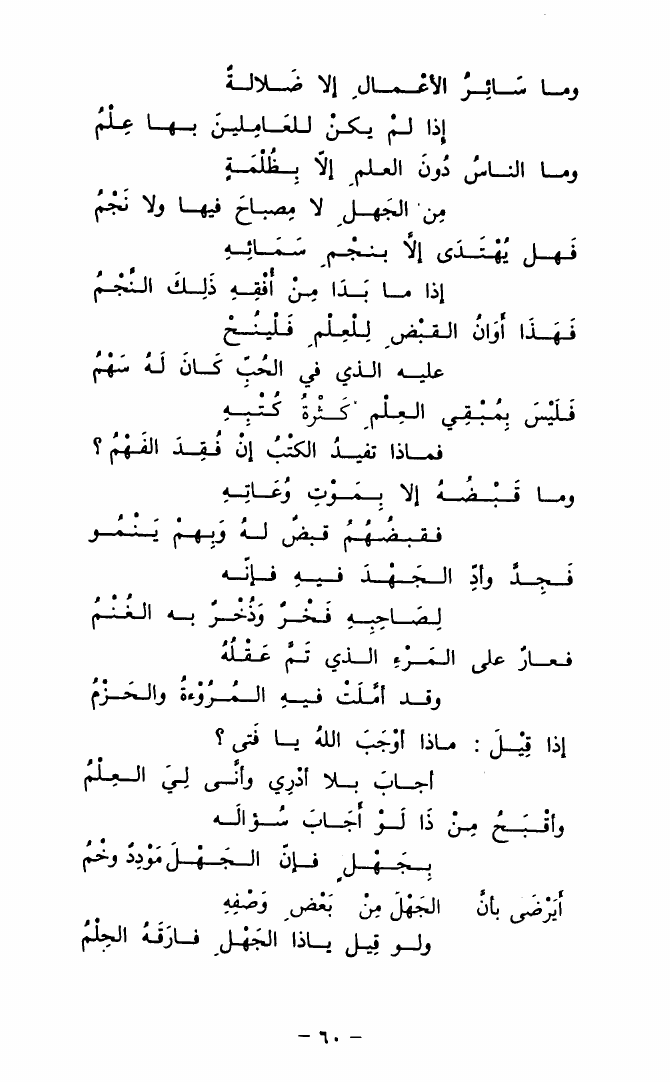 وما سَائِرُ الأعْمالِ إلا ضَلالةٌ
إذا لمْ يكنْ للعَامِلينَ بها عِلْمُ
وما الناسُ دُونَ العلمِ إلّا بِظُلْمَةٍ
مِن الجَهلِ لا مِصباحَ فيها ولا نَجْمُ
فَهل يُهْتَدَى إلاَّ بنجْمٍ سَمَائِهِ
إذا ما بَدَا مِنْ أُفْقِهِ ذَلِكَ النَّجْمُ
فَهَذَا أوَانُ القبْضِ لِلْعِلْمِ فَلْيَنُحْ
عليه الذي في الحُبِّ كَانَ لَهُ سَهْمُ
فَلَيْسَ بِمُبْقِي العِلْمِ كَثْرَةُ كُتْبِهِ
فماذا تفيدُ الكتْبُ إنْ فُقِدَ الفَهْمُ ؟
وما قَبْضُهُ إلا بِمَوْتِ وُعَاتِهِ
فقبضُهُمُ قبضٌ لهُ وَبِهمْ يَنْمُو
فَجِدَّ وأدِّ الجَهْدَ فيهِ فإنَّه
لِصَاحِبِهِ فَخْرٌ وَذُخْرٌ به الغُنْمُ
فعارٌ على المَرْءِ الذي تَمَّ عَقْلُهُ
وقد أمَّلَتْ فيهِ المُرُوْءَةُ والحَزْمُ
إذا قِيْلَ : ماذا أوْجَبَ اللهُ يا فَتى ؟
أجابَ بلا أدْرِي وأنَّى لِيَ العِلْمُ
وأقْبَحُ مِنْ ذَا لَوْ أَجَابَ سُؤالَه
بِجَهْلٍ فإنّ الجَهْلَ مَوْرِدٌ وَخْمُ
أَيَرْضَى بأنَّ الجَهْلَ مِنْ بَعْضِ وَصْفِهِ
ولو قِيل ياذا الجَهْلِ فارَقَهُ الحِلْمُ
– ٦٠ –